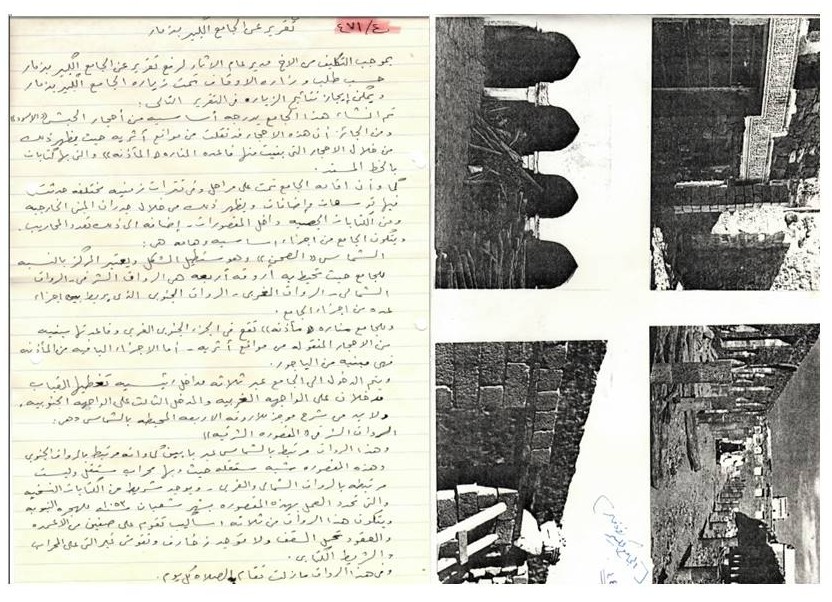 ٤٧١/٤٠
تقرير عن الجامع الكبير بذمار
بموجب التكليف من الاخ مدير عام الآثار لرفع تقرير عن الجامع الكبير بذمار
حسب طلب وزاره الاوقاف تمت زياره الجامع الكبير بذمار
ويمكن إيجاز نتائج الزياره في التقرير التالي:
تم انشاء هذا الجامع بدرجه أساسيه من أحجار الحبش (الاسود)
ومن الجائز أن هذه الاحجار قد نقلت من مواقع أثريه حيث يظهر ذلك
من خلال الاحجار التي بنيت منها قاعده المناره «المأذنه» والتي بها كتابات
بالخط المسند.
كما وأن اقامه الجامع تمت على مراحل وفي فترات زمنيه مختلفه حدثت
فيها توسعات وإضافات ويظهر ذلك من خلال جدران المبنى الخارجيه
ومن الكتابات الجصيه داخل المقصورات - إضافه الى ذلك تعدد المحاريب.
ويتكون الجامع من اجزاء اساسيه وهامه هي:
الشماسي «الصحن» وهو مستطيل الشكل ويعتبر المركز بالنسبه
للجامع حيث تحيط به أروقه أربعه هي الرواق الشرقي - الرواق
الشمالي - الرواق الغربي - الرواق الجنوبي الذي يربط بين اجزاء
عده من اجزاء الجامع.
وللجامع مناره «مأذنه» تقع في الجزء الجنوبي الغربي وقاعدتها مبنيه
من الاحجار المنقوله من مواقع أثريه - أما الاجزاء الباقيه من المأذنه
فهي مبنيه من الياجور.
ويتم الدخول الى الجامع عبر ثلاثه مداخل رئيسيه تغطيها القباب
مدخلان على الواجهه الغربيه والمدخل الثالث على الواجهه الجنوبيه.
ولابد من شرح موجز للاروقه الاربعه المحيطه بالشماسي وهي:
الرواق الشرقي «المقصوره الشرقيه»
وهذا الرواق مرتبط بالشماسي عبر بابين كما وانه مرتبط بالرواق الجنوبي
وهذه المقصوره شبه مستقله حيث وبها محراب مستقل وليست
مرتبطه بالرواق الشمالي والغربي - ويوجد شريط من الكتابات النسخيه
والتي تحدد العمل بهذه المقصوره بشهر شعبان للهجره النبويه
ويتكون هذا الرواق من ثلاثه اساليب تقوم على صفين من الاعمده
والعقود تحمل السقف ولا توجد زخارف ونقوش غير التي على المحراب
والشريط الكتابي.
وفي هذا الرواق مازلت تقام الصلاه كل يوم.